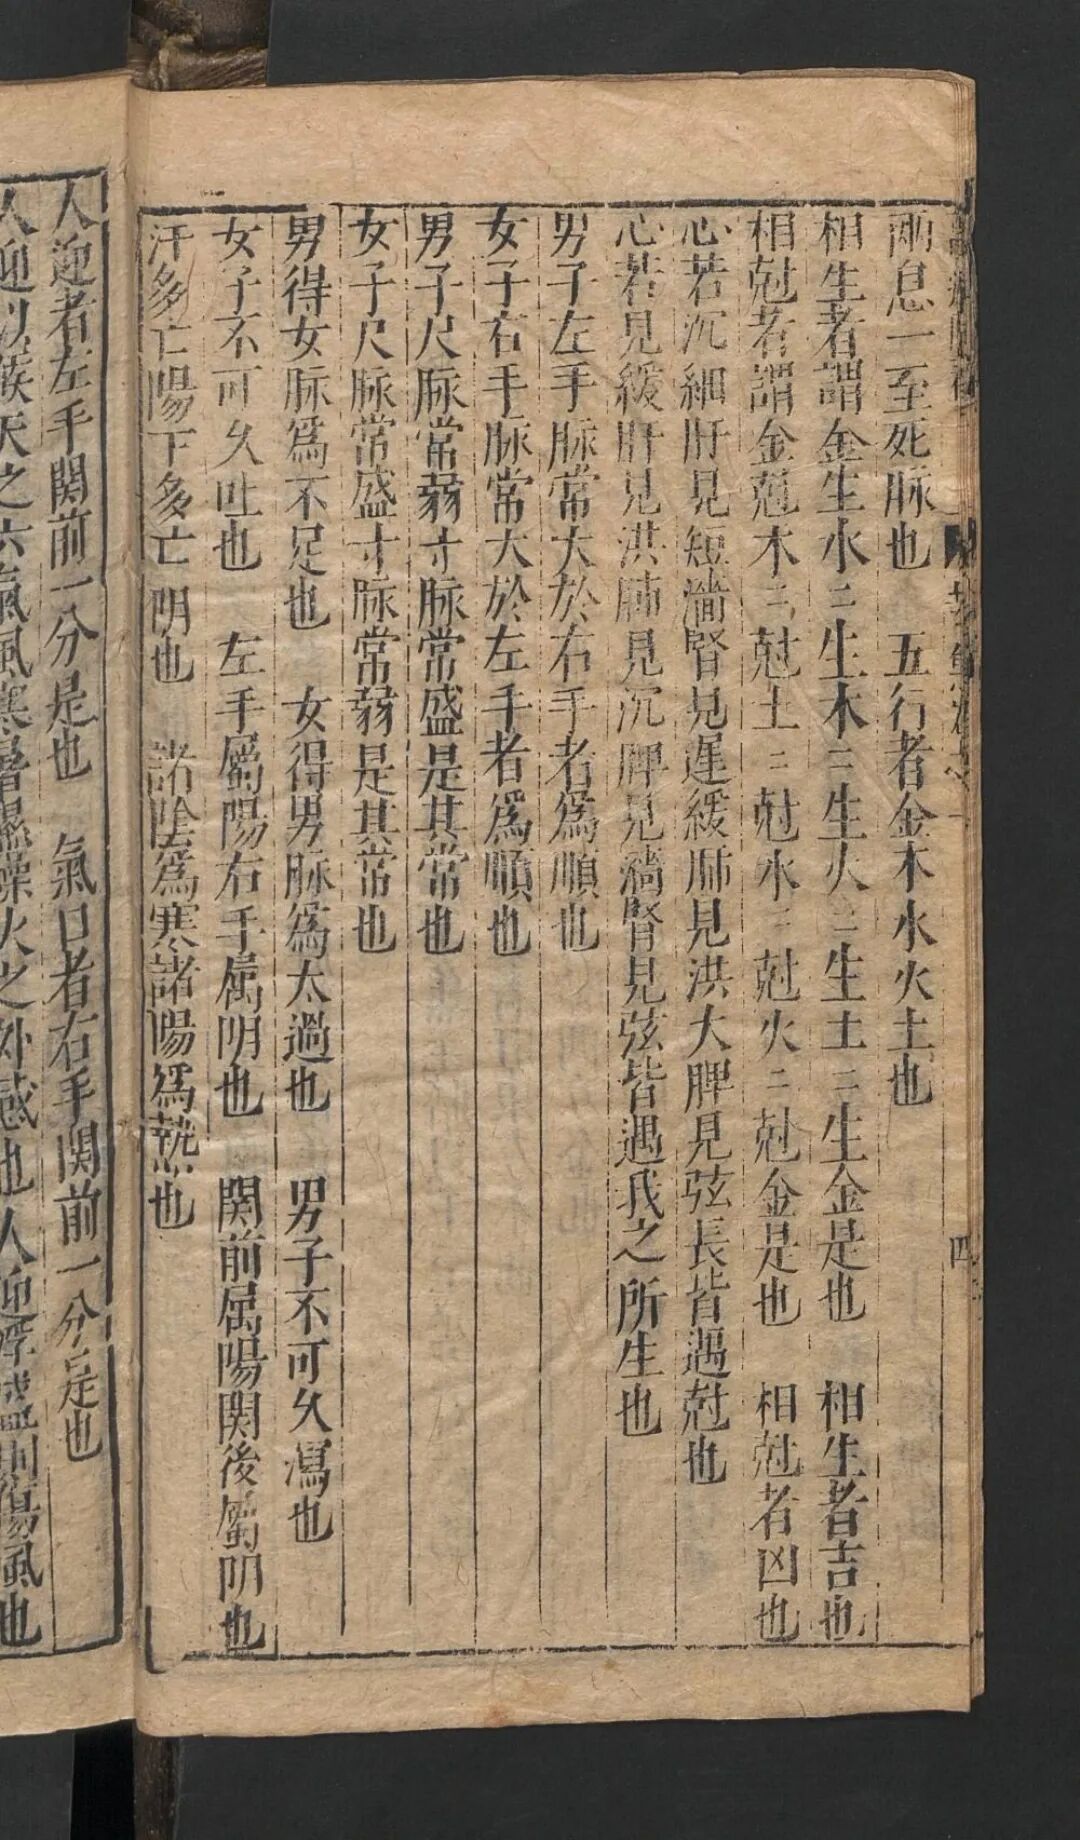 兩息一至死脉也　五行者金木水火土也
相生者謂金生水〻生木〻生火〻生土〻生金是也　相生者吉也
相尅者謂金尅木〻尅土〻尅水〻尅火〻尅金是也　相尅者凶也
心若沉細肝見短濇腎見遲緩肺見洪大脾見弦長皆遇尅也
心若見緩肝見洪肺見沉脾見濇腎見弦皆遇我之所生也
男子左手脉常大於右手者為順也
女子右手脉常大於左手者為順也
男子尺脉常弱寸脉常盛是其常也
女子尺脉常盛寸脉常弱是其常也
男得女脉為不足也　女得男脉為太過也　男子不可久瀉也
女子不可久吐也　左手屬陽右手属阴也　関前屈陽関後屬阴也
汗多亡陽下多亡阴也　諸陰為寒諸陽為热也
人迎者左手関前一分是也　氣口者右手関前一分是也
人迎以候天之六氣風寒暑濕燥火之外感也人迎浮盛則傷風也
四